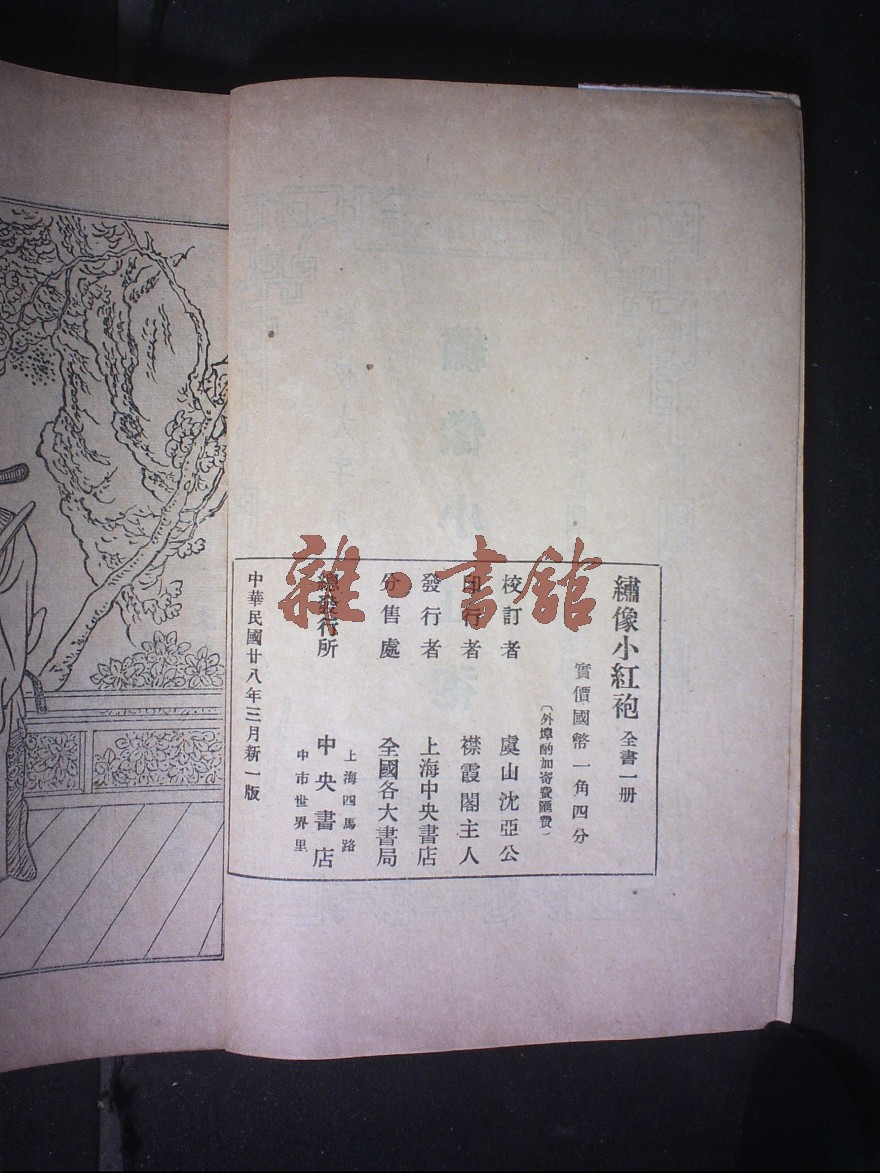 繡像小紅袍 全書一册
實價國幣一角四分
（外埠酌加寄費匯費）
校訂者 虞山沈亞公
印行者 襟霞閣主人
發行者 上海中央書店
分售處 全國各大書局
總發行所 上海四馬路 中央書店 中市世界里
中華民國廿八年三月新一版
雜·書館